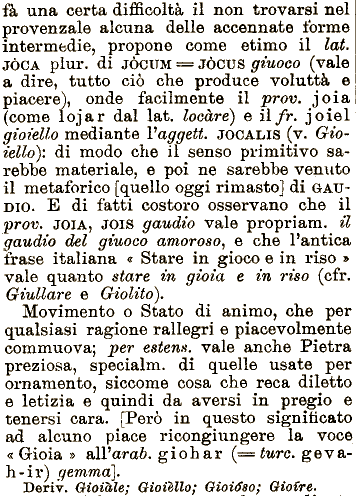 fà una certa difficoltà il non trovarsi nel
provenzale alcuna delle accennate forme
intermedie, propone come etimo il lat.
JÒCA plur. di JÒCUM = JÒCUS giuoco (vale
a dire, tutto ciò che produce voluttà e
piacere), onde facilmente il prov. joia
(come lojar dal lat. locàre) e il fr. joiel
gioiello mediante l'aggett. JOCALIS (v. Gio-
iello): di modo che il senso primitivo sa-
rebbe materiale, e poi ne sarebbe venuto
il metaforico [quello oggi rimasto] di GAU-
DIO. E di fatti costoro osservano che il
prov. JOIA, JOIS gaudio vale propriam. il
gaudio del giuoco amoroso, e che l'antica
frase italiana « Stare in gioco e in riso »
vale quanto stare in gioia e in riso (cfr.
Giullare e Giolito).
Movimento o Stato di animo, che per
qualsiasi ragione rallegri e piacevolmente
commuova; per estens. vale anche Pietra
preziosa, specialm. di quelle usate per
ornamento, siccome cosa che reca diletto
e letizia e quindi da aversi in pregio e
tenersi cara. [Però in questo significato
ad alcuno piace ricongiungere la voce
« Gioia » all'arab. giohar (= turc. geva-
h-ir) gemma].
Deriv. Gioiàle; Gioièllo; Gioióso; Gioíre.